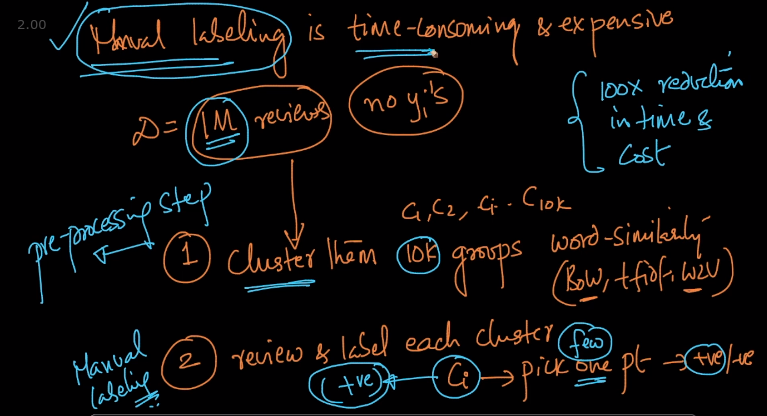 2.00
✓ Manual labeling is time-consoming & expensive
D = 1M reviews no yi's
{ 100x reduction
in time &
cost
pre-processing step
C1, C2, Ci .. C10K
1 Cluster them 10K groups word-similarity
(BoW, tfidf, W2V)
Manual
labeling
2 review & label each cluster few
(+ve) ← Ci → pick one pt → +ve/-ve